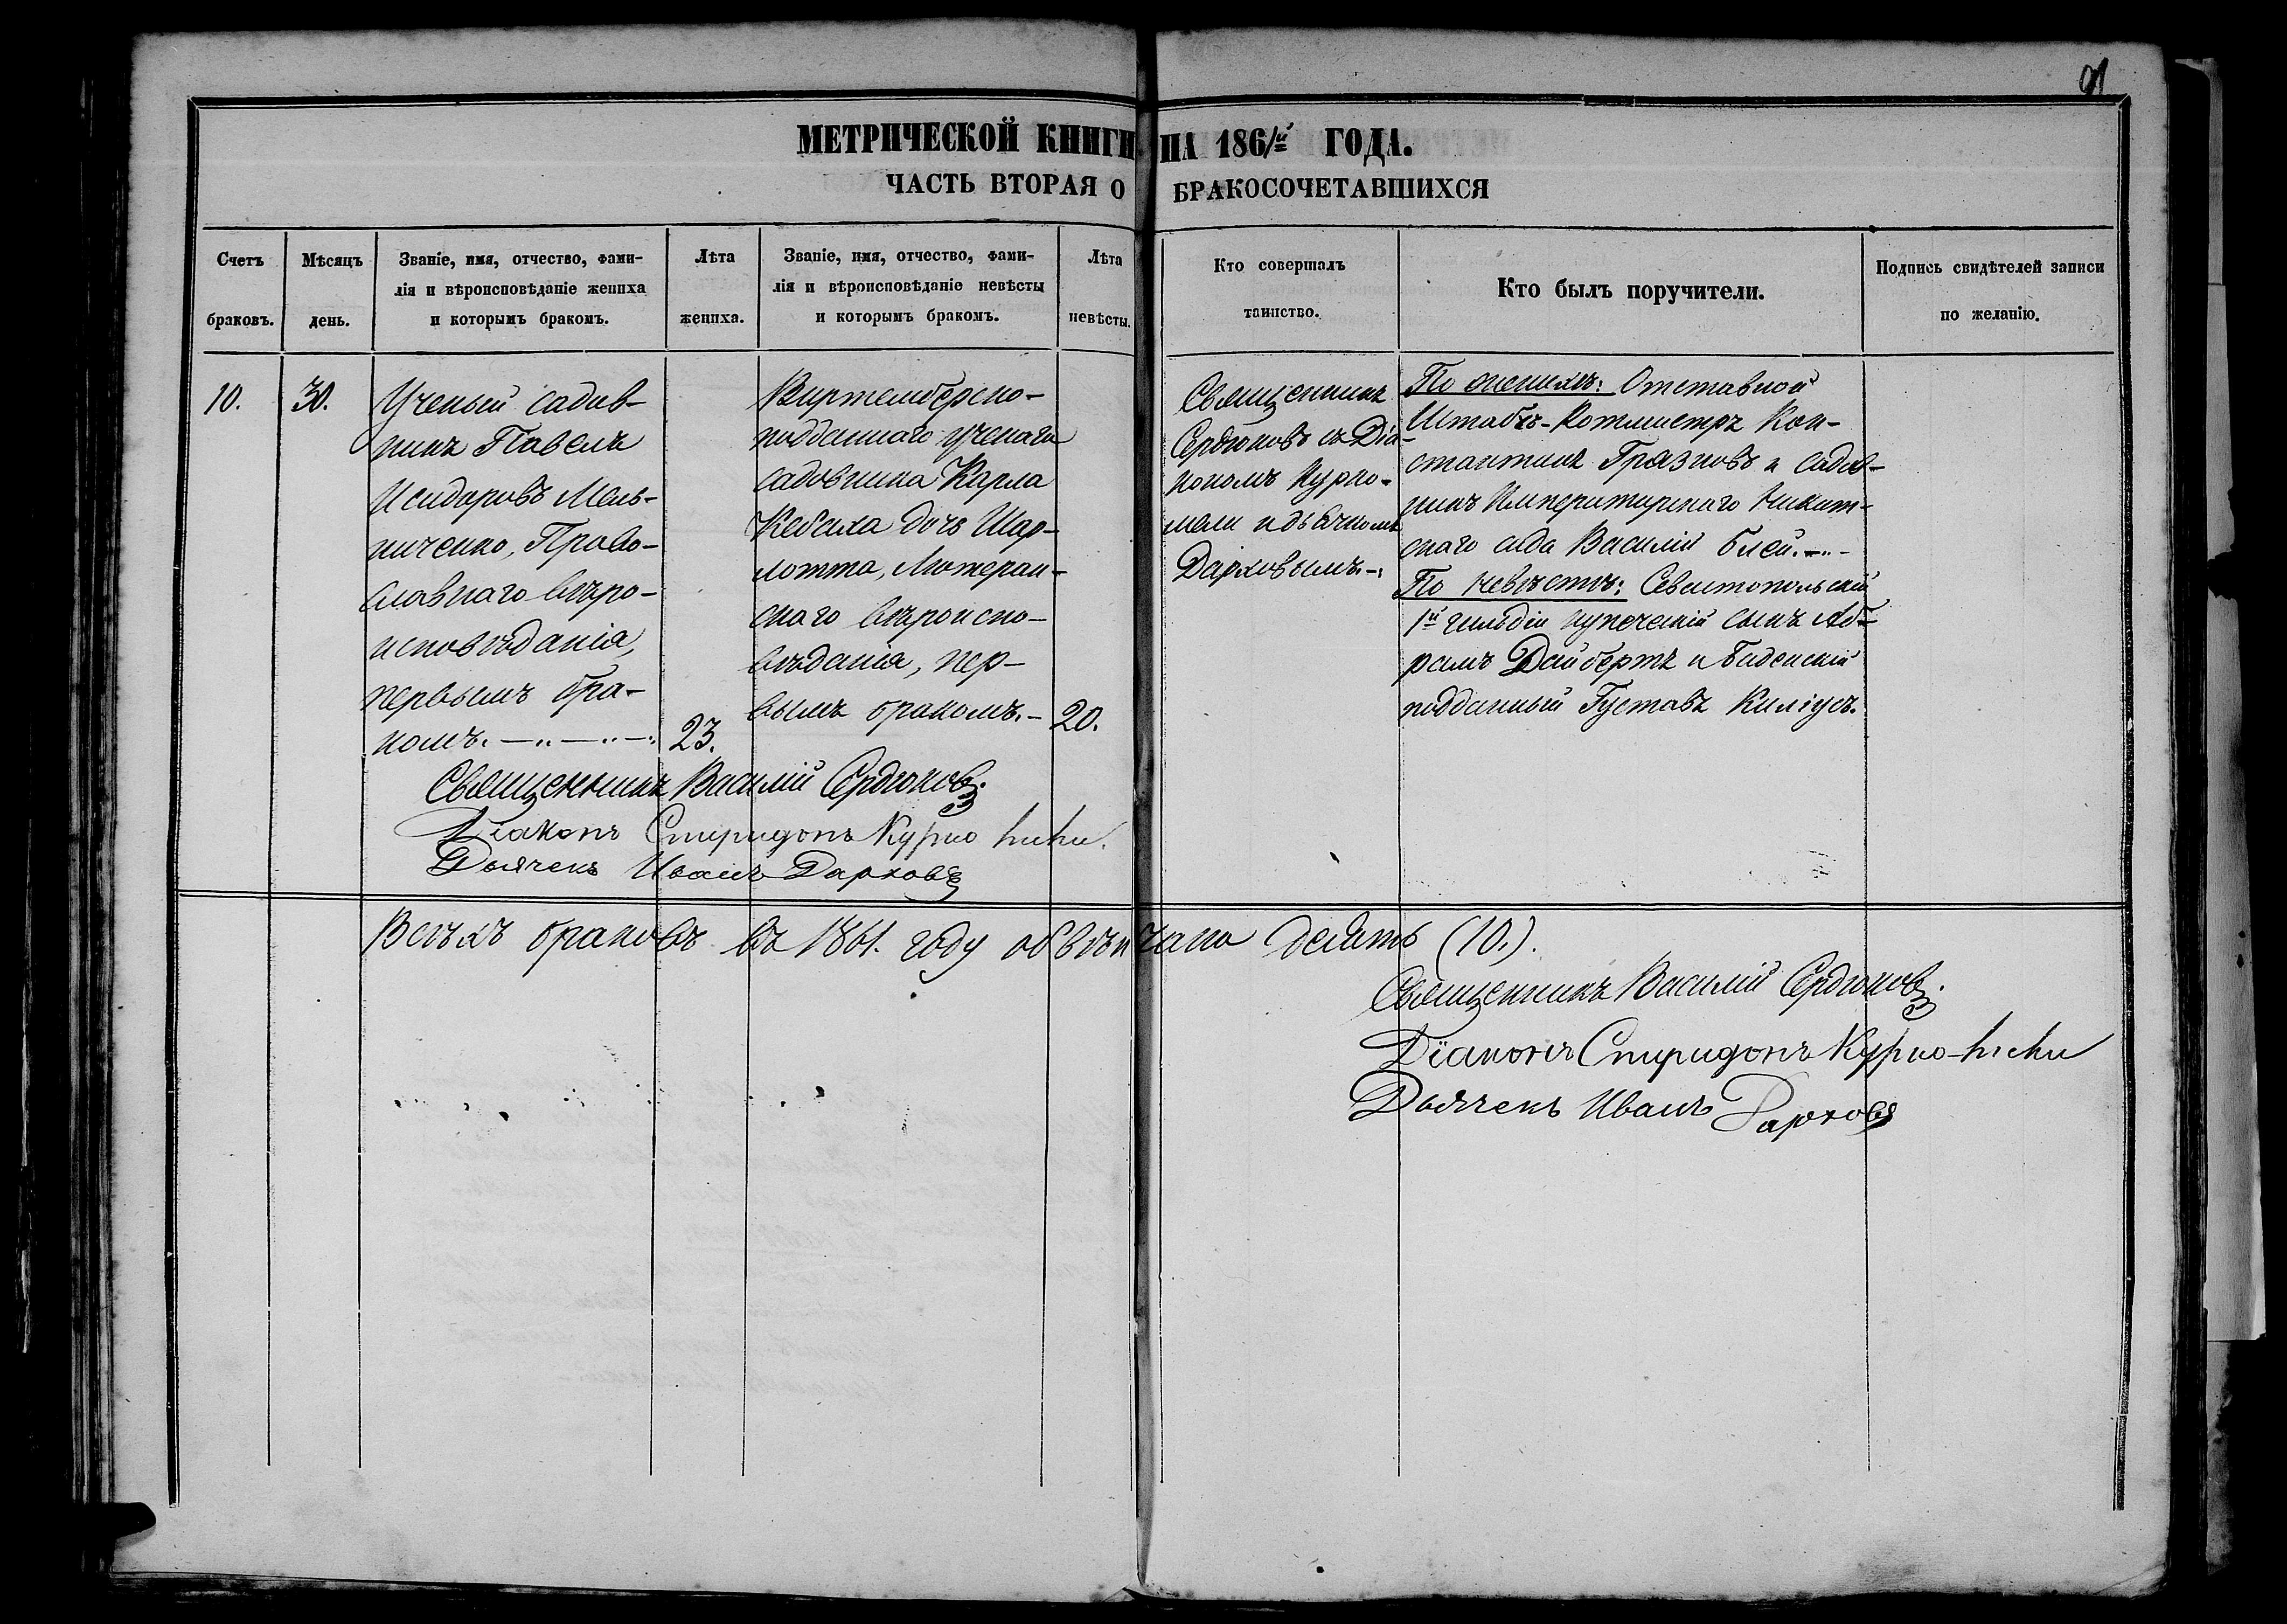 91
МЕТРИЧЕСКОЙ КНИГИ НА 1861й ГОДА.
ЧАСТЬ ВТОРАЯ О БРАКОСОЧЕТАВШИХСЯ
Счетъ
браковъ.
Мѣсяцъ
день.
Званіе, имя, отчество, фами-
лія и вѣроисповѣданіе жениха
и которымъ бракомъ.
Лѣта
жениха.
Званіе, имя, отчество, фами-
лія и вѣроисповѣданіе невѣсты
и которымъ бракомъ.
Лѣта
невѣсты.
Кто совершалъ
таинство.
Кто былъ поручители.
Подпись свидѣтелей записи
по желанію.
10.
30.
Ученый садов-
никъ Павелъ
Исидоровъ Мель-
ниченко, Право-
славнаго вѣро-
исповѣданія,
первымъ бра-
комъ.
23.
Виртембергско-
подданнаго ученаго
садовника Карла
Кебаха дочь Шар-
лотта, Лютеран-
скаго вѣроиспо-
вѣданія, пер-
вымъ бракомъ.-
20.
Священникъ
Сердюковъ съ Діа-
кономъ Курко-
мели и дьячкомъ
Дарховымъ.-
По женихѣ: Отставной
Штабъ-Ротмистръ Кон-
стантинъ Грязновъ и садов-
никъ Императорскаго Никит-
скаго сада Василій Блей.
По невѣстѣ: Севастопольскій
1й гильдіи купеческій сынъ Аб-
рамъ Дайбертъ и Баденскій
подданный Густавъ Килiусъ.
Священникъ Василій Сердюковъ.
Діаконъ Спиридонъ Курко
Дьячекъ Иванъ Дарховъ
Всѣхъ браковъ въ 1861. году обвѣнчано десять (10.).
Священникъ Василій Сердюковъ.
Діаконъ Спиридонъ Курко-
Дьячекъ Иванъ Дарховъ